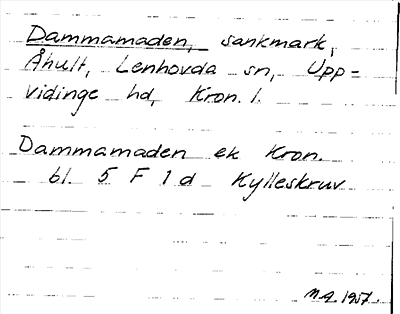 Dammamaden, sankmark,
Åhult, Lenhovda sn, Upp-
vidinge hd, Kron. l.
Dammamaden ek Kron.
bl. 5 F 1 d Kylleskruv
1957.